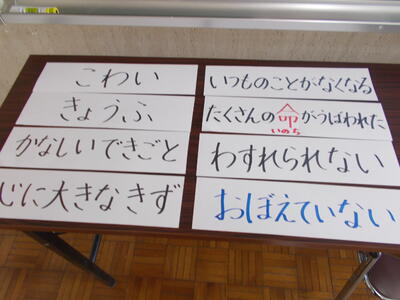 こわい
きょうふ
かなしいできごと
じに大きなきず
いつものことがなくなる
たくさんの命がうばわれた
いのち
わすれられない
おぼえていない